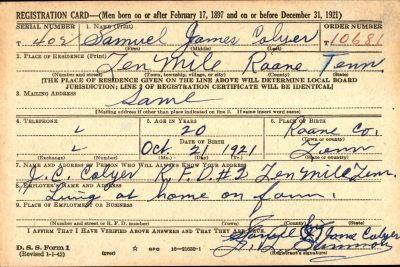 REGISTRATION CARD—(Men born on or after February 17, 1897 and on or before December 31, 1921)
SERIAL NUMBER 1. NAME (Print) ORDER NUMBER
T 402 Samuel James Colyer T10681
(First) (Middle) (Last)
2. PLACE OF RESIDENCE (Print)
Ten Mile Roane Tenn
(Number and street) (Town, township, village, or city) (County) (State)
[THE PLACE OF RESIDENCE GIVEN ON THE LINE ABOVE WILL DETERMINE LOCAL BOARD
JURISDICTION; LINE 2 OF REGISTRATION CERTIFICATE WILL BE IDENTICAL]
3. MAILING ADDRESS
Same
[Mailing address if other than place indicated on line 2. If same insert word same]
4. TELEPHONE 5. AGE IN YEARS 6. PLACE OF BIRTH
20 Roane Co.
DATE OF BIRTH (Town or county)
Oct 21 1921 Tenn
(Exchange) (Number) (Mo.) (Day) (Yr.) (State or country)
7. NAME AND ADDRESS OF PERSON WHO WILL ALWAYS KNOW YOUR ADDRESS
J. C. Colyer R.F.D. #2 Ten Mile Tenn.
8. EMPLOYER'S NAME AND ADDRESS
Living at home on farm.
9. PLACE OF EMPLOYMENT OR BUSINESS
(Number and street or R. F. D. number) (Town) (County) (State)
I AFFIRM THAT I HAVE VERIFIED ABOVE ANSWERS AND THAT THEY ARE TRUE.
James Colyer
D. S. S. Form 1
(Revised 1-1-42) GPO 16—21630-1 (Registrant's signature)